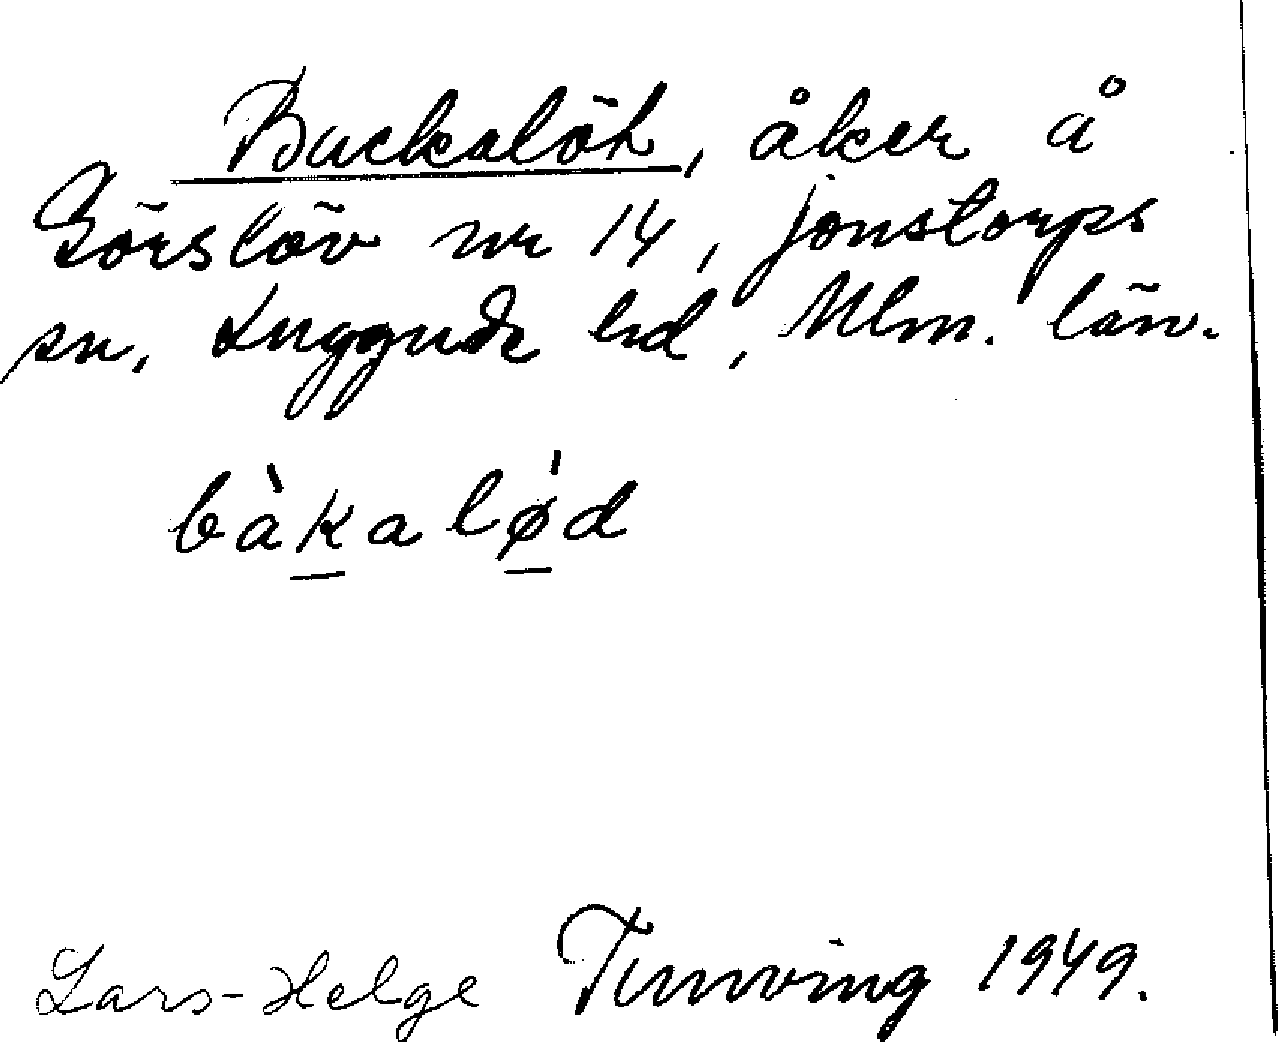 Backalöt, åker å
Görslöv nr 14, Jonstorps
sn, Luggude hd, Mlm. län.
bàkalǿd
Lars-Helge Tunving 1949.